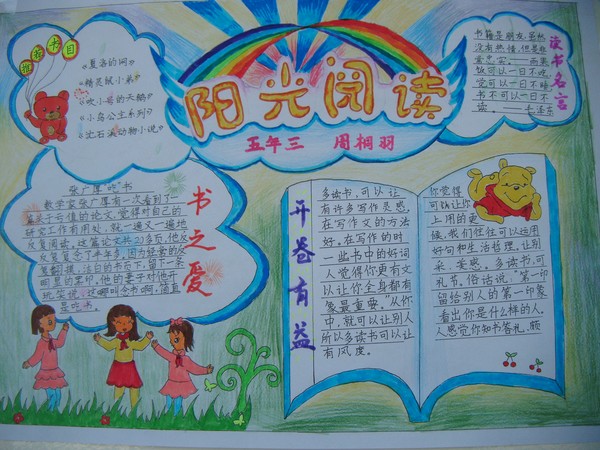 推荐书目
《夏洛的网》
《精灵鼠小弟》
《吹小号的天鹅》
《小乌公主系列》
《沈石溪动物小说》
阳光阅读
五年三 周桐羽
读书名言
书籍是朋友,虽然
没有热情,但是非
常忠实。——雨果
饭可以一日不吃,
觉可以一日不睡,
书不可以一日不
读。——毛泽东
张广厚吃书
数学家张广厚有一次看到了一
篇关于亏值的论文,觉得对自己的
研究工作有用处,就一遍又一遍地
反复阅读。这篇论文共20多页,他反
反复复念了半年多。因为经常的反
复翻摸,洁白的书页上,留下一条
明显的黑印。他的妻子对他开
玩笑说,这哪叫念书啊,简直
是吃书。
书之爱
开卷有益
多读书,可以让
有许多写作灵感。
在写作文的方法
好。在写作的时
一些书中的好词
人觉得你更有文
以让你全身都有
象最重要。”从你
中,就可以让别人
所以多读书可以让
有风度。
你觉得
可以让你
上用的更
候,我们往往可以运用
好句和生活哲理,让别
采、美感。多读书,可
礼节。俗话说:“第一印
留给别人的第一印象
看出你是什么样的人。
人感觉你知书答礼、颇